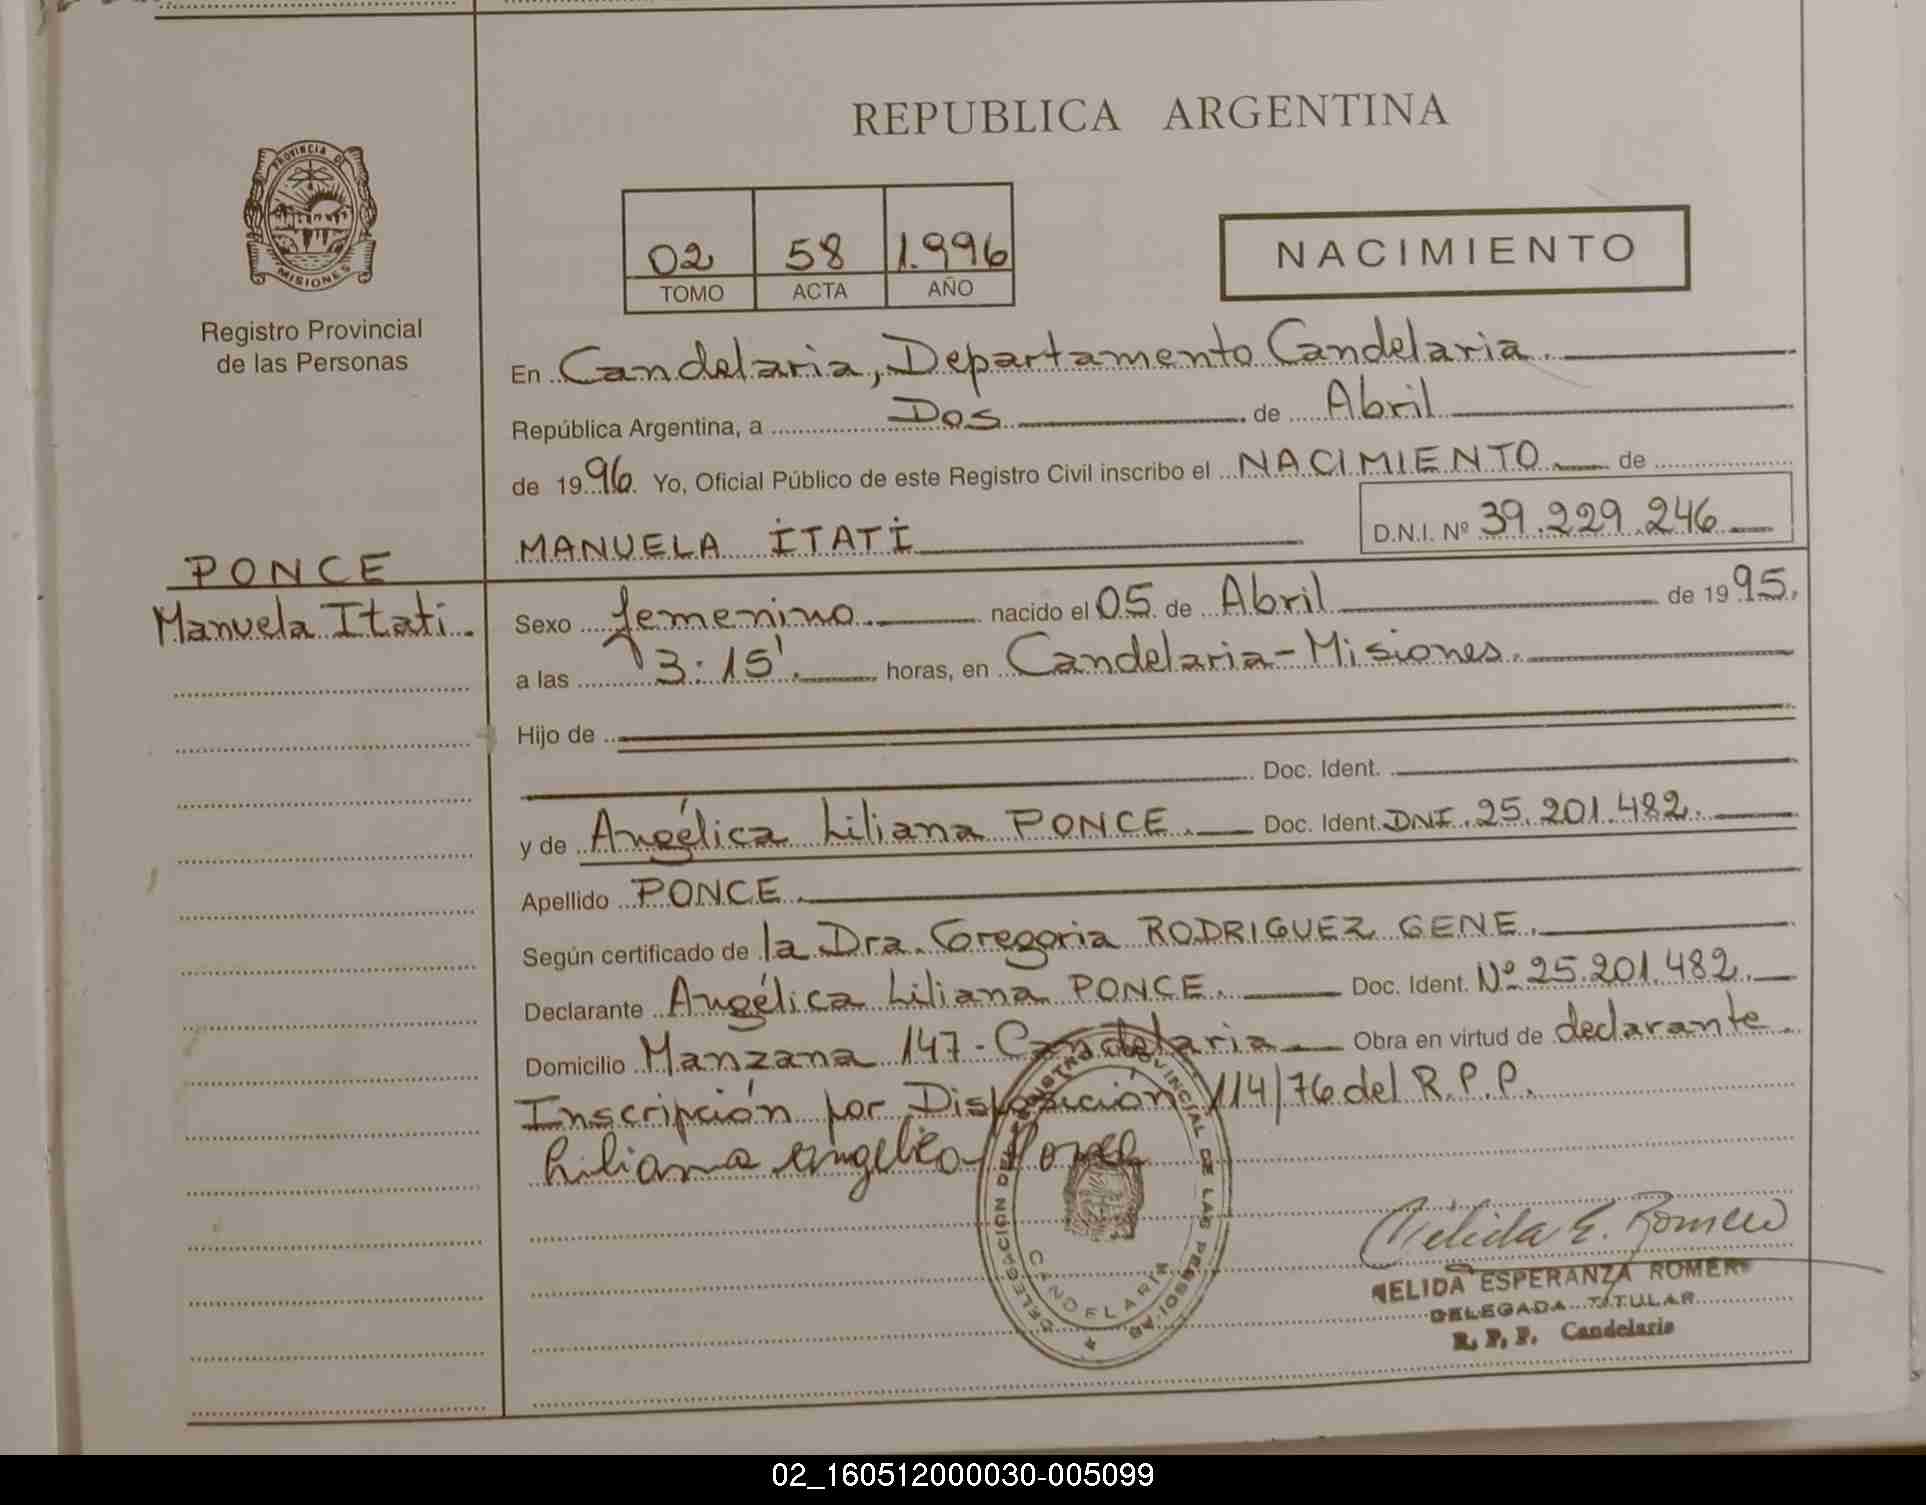 REPUBLICA ARGENTINA
PROVINCIA DE
MISIONES
Registro Provincial
de las Personas
02 58 1.996
TOMO ACTA AÑO
NACIMIENTO
En Candelaria, Departamento Candelaria.
República Argentina, a Dos de Abril
de 1996. Yo, Oficial Público de este Registro Civil inscribo el NACIMIENTO de
MANUELA ITATI D.N.I. Nº 39.229.246
PONCE
Manuela Itati.
Sexo femenino. nacido el 05 de Abril de 1995.
a las 3:15'. horas, en Candelaria-Misiones.
Hijo de
Doc. Ident.
y de Angélica Liliana PONCE. Doc. Ident. DNI. 25.201.482.
Apellido PONCE.
Según certificado de la Dra. Gregoria RODRIGUEZ GENE.
Declarante Angélica Liliana PONCE. Doc. Ident. Nº 25.201.482.
Domicilio Manzana 147-Candelaria Obra en virtud de declarante.
Inscripción por Disposición 114/76 del R.P.P.
Liliana Angelica Ponce
DELEGACION DEL REGISTRO PROVINCIAL DE LAS PERSONAS
CANDELARIA
Nélida E. Romero
NELIDA ESPERANZA ROMERO
DELEGADA TITULAR
R. P. P. Candelaria
02_160512000030-005099